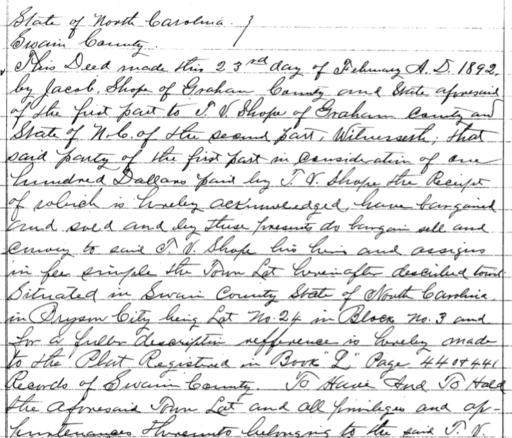 State of North Carolina. }
Swain County.
This Deed made this 23rd day of February A.D. 1892.
by Jacob Shope of Graham County and State aforesaid
of the first part to T. V. Shope of Graham County and
State of N.C. of the second part, Witnesseth; that
said party of the first part in consideration of one
hundred Dollars paid by T. V. Shope the Receipt
of which is hereby acknowledged, have bargained
and sold and by these presents do bargain sell and
convey to said T. V. Shope his heirs and assigns
in fee simple the Town Lot hereinafter described
Situated in Swain County State of North Carolina.
in Bryson City being Lot No. 24 in Block No. 3 and
for a fuller description refference is hereby made
to the Plat Registered in Book "L" Page 440 + 441
Records of Swain County. To Have And To Hold
the aforesaid Town Lot and all privileges and ap-
purtenances thereunto belonging to the said T. V.